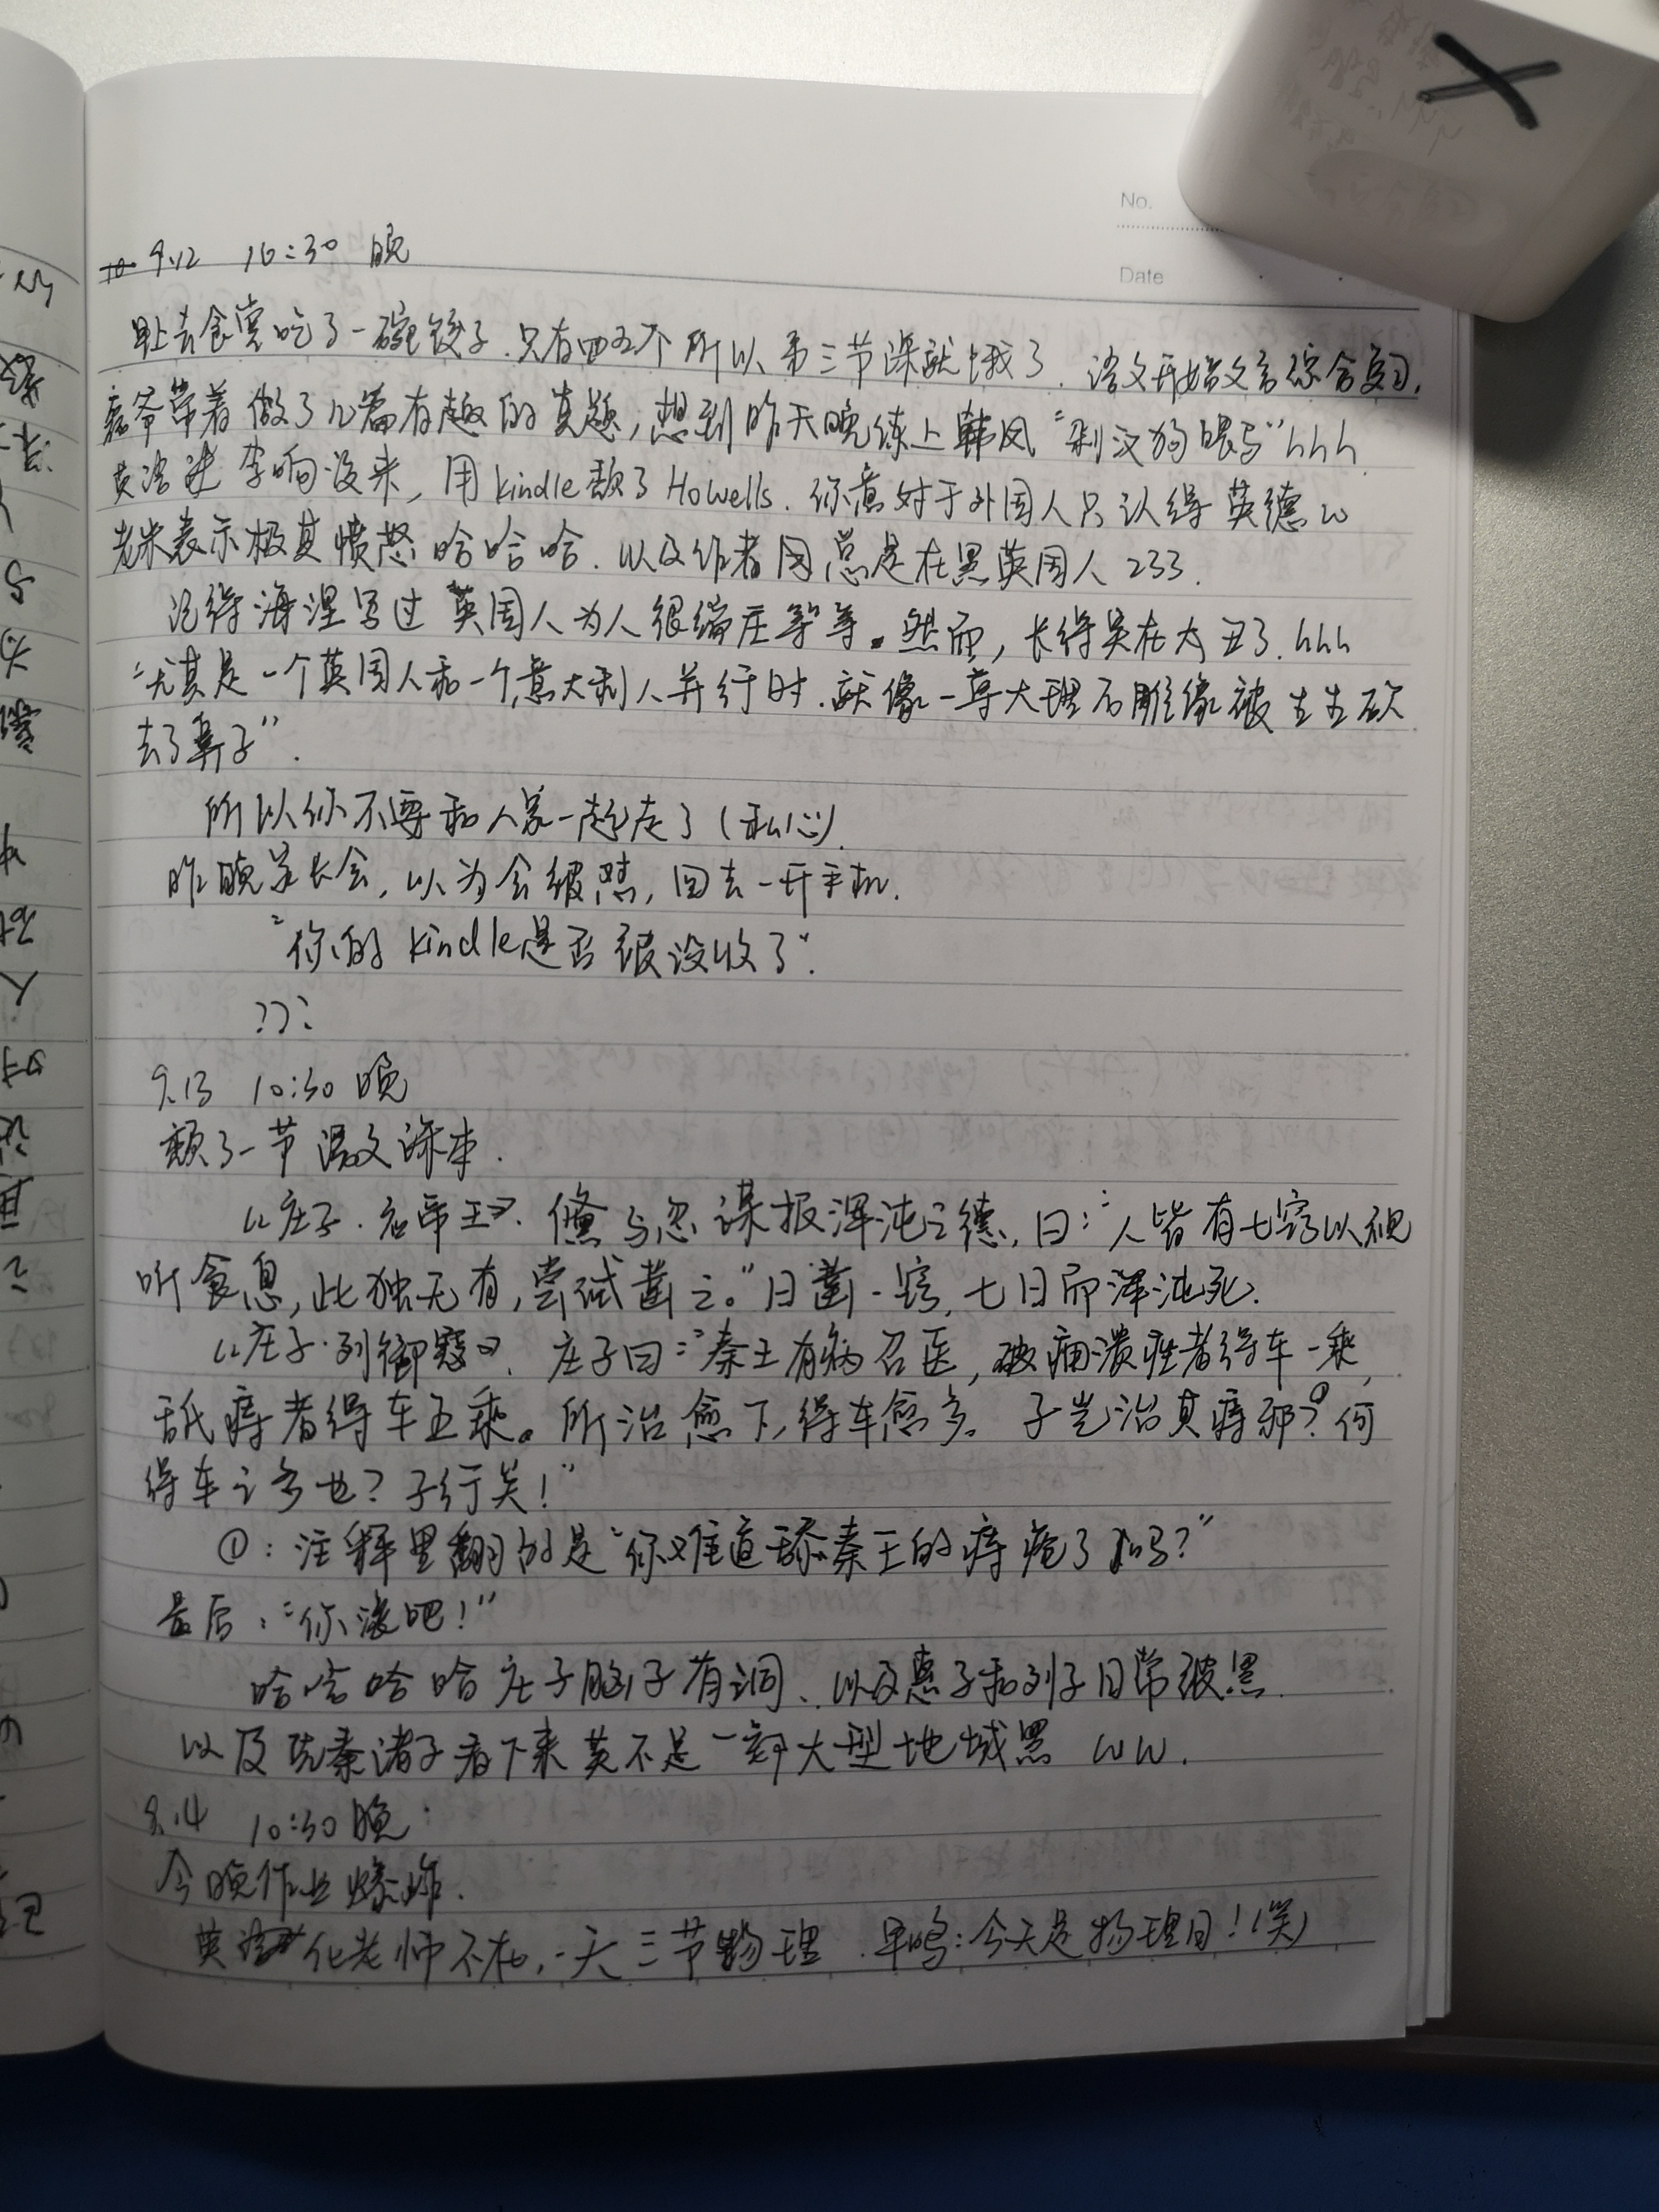 No.
Date
9.12 10:30 晚
早上去食堂吃了一碗饺子.只有四五个所以第三节课就饿了.语文开始文言综合复习,
带着做了几篇有趣的真题,想到昨天晚练上韩风"刺汉狗喂马"hhh
英语 李响没来,用kindle颓了Howells.你意对于外国人只认得英德w
老米表示极其愤怒哈哈哈.以及作者 总是在黑英国人233.
记得海涅写过 英国人为人很端庄等等。然而,长得实在太丑了.hhh
"尤其是一个英国人和一个意大利人并行时.就像一尊大理石雕像被生生砍
去了鼻子".
所以你不要和人家一起走了(私心).
昨晚 长会,以为会被怼,回去一开手机.
"你的kindle是否被没收了".
???
9.13 10:30 晚
颓了一节语文课本.
《庄子.应帝王》.儵与忽谋报浑沌之德,曰:"人皆有七窍以视
听食息,此独无有,尝试凿之。"日凿一窍,七日而浑沌死.
《庄子·列御寇》.庄子曰:"秦王有病召医,破痈溃痤者得车一乘,
舐痔者得车五乘。所治愈下,得车愈多。子岂治其痔邪?①何
得车之多也?子行矣!"
①:注释里翻的是"你难道舔秦王的痔疮了吗?"
最后:"你滚吧!"
哈哈哈哈庄子脑子有洞、以及惠子和列子日常被黑.
以及先秦诸子看下来莫不是一部大型地域黑 ww.
9.14 10:30晚
今晚作业爆炸.
化老师不在,一天三节物理.早鸣:今天是物理日!(笑)